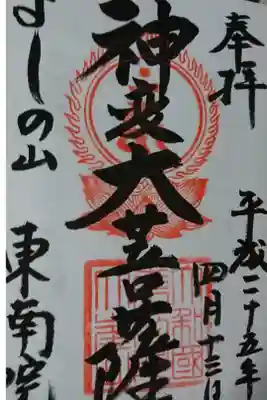 奉拝
平成二十五年
四月十三日
神変大菩薩
よしの山
東南院